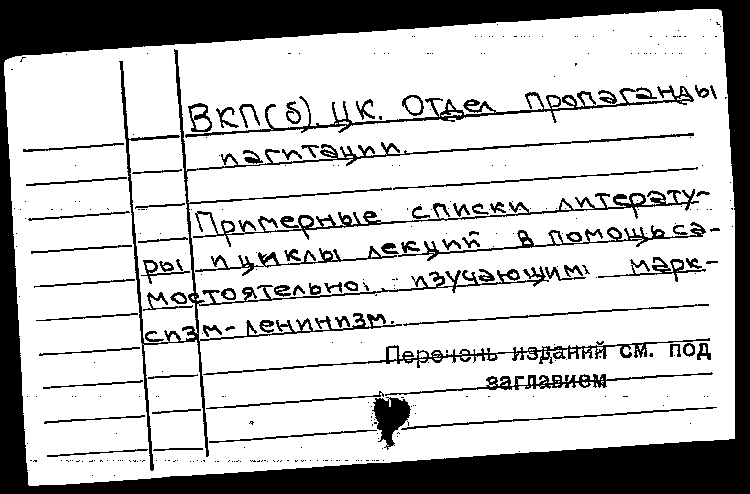 ВКП(б). ЦК. Отдел пропаганды
и агитации.
Примерные списки литерату-
ры и циклы лекций в помощь са-
мостоятельно изучающим марк-
сизм-ленинизм.
Перечень изданий см. под
заглавием